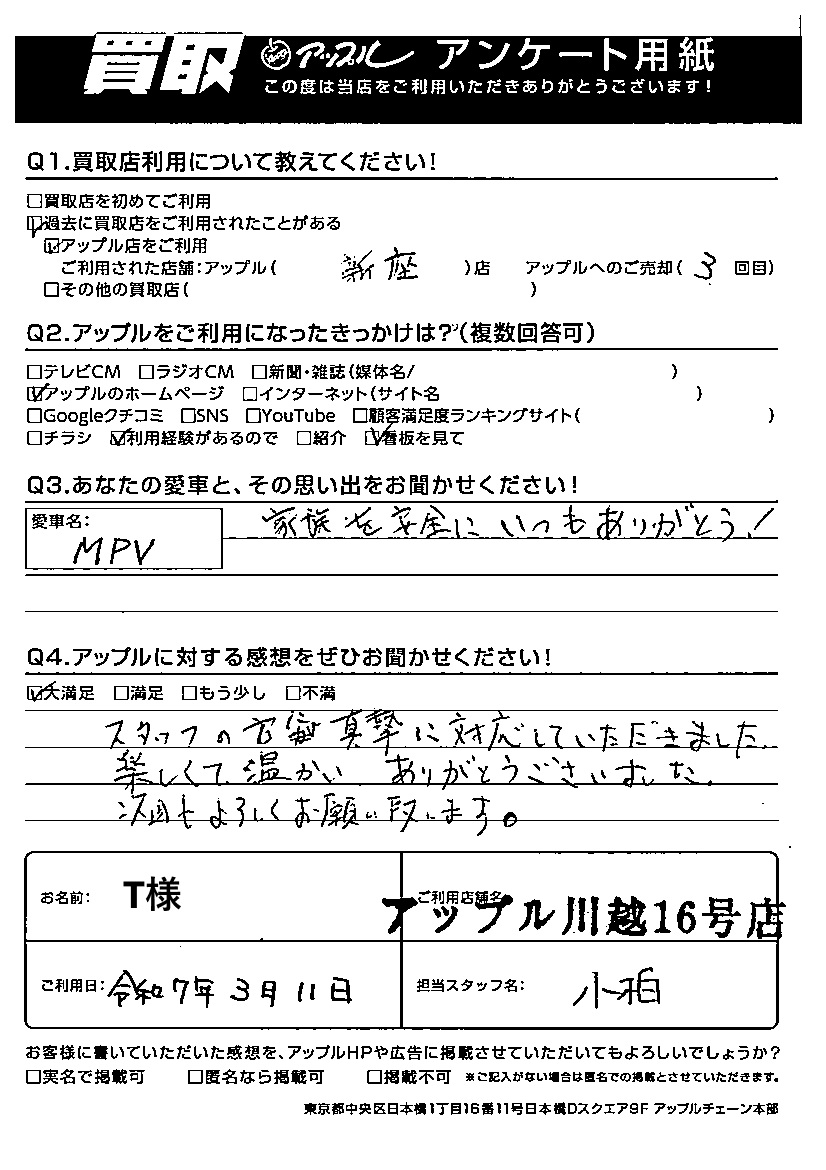 買取 アップル アンケート用紙
この度は当店をご利用いただきありがとうございます!
Q1.買取店利用について教えてください!
□買取店を初めてご利用
☑過去に買取店をご利用されたことがある
☑アップル店をご利用
ご利用された店舗:アップル( 新座 )店 アップルへのご売却( 3 回目)
□その他の買取店( )
Q2.アップルをご利用になったきっかけは?(複数回答可)
□テレビCM □ラジオCM □新聞・雑誌(媒体名/ )
☑アップルのホームページ □インターネット(サイト名 )
□Googleクチコミ □SNS □YouTube □顧客満足度ランキングサイト( )
□チラシ ☑利用経験があるので □紹介 ☑看板を見て
Q3.あなたの愛車と、その思い出をお聞かせください!
愛車名: MPV
家族を安全にいつもありがとう!
Q4.アップルに対する感想をぜひお聞かせください!
☑大満足 □満足 □もう少し □不満
スタッフの 真摯に対応していただきました。
楽しくて温かい ありがとうございました。
次回もよろしくお願い致します。
お名前: T様
ご利用店舗名 アップル川越16号店
ご利用日: 令和7年3月11日
担当スタッフ名: 小柏
お客様に書いていただいた感想を、アップルHPや広告に掲載させていただいてもよろしいでしょうか?
□実名で掲載可 □匿名なら掲載可 □掲載不可 ※ご記入がない場合は匿名での掲載とさせていただきます。
東京都中央区日本橋1丁目16番11号日本橋Dスクエア9F アップルチェーン本部